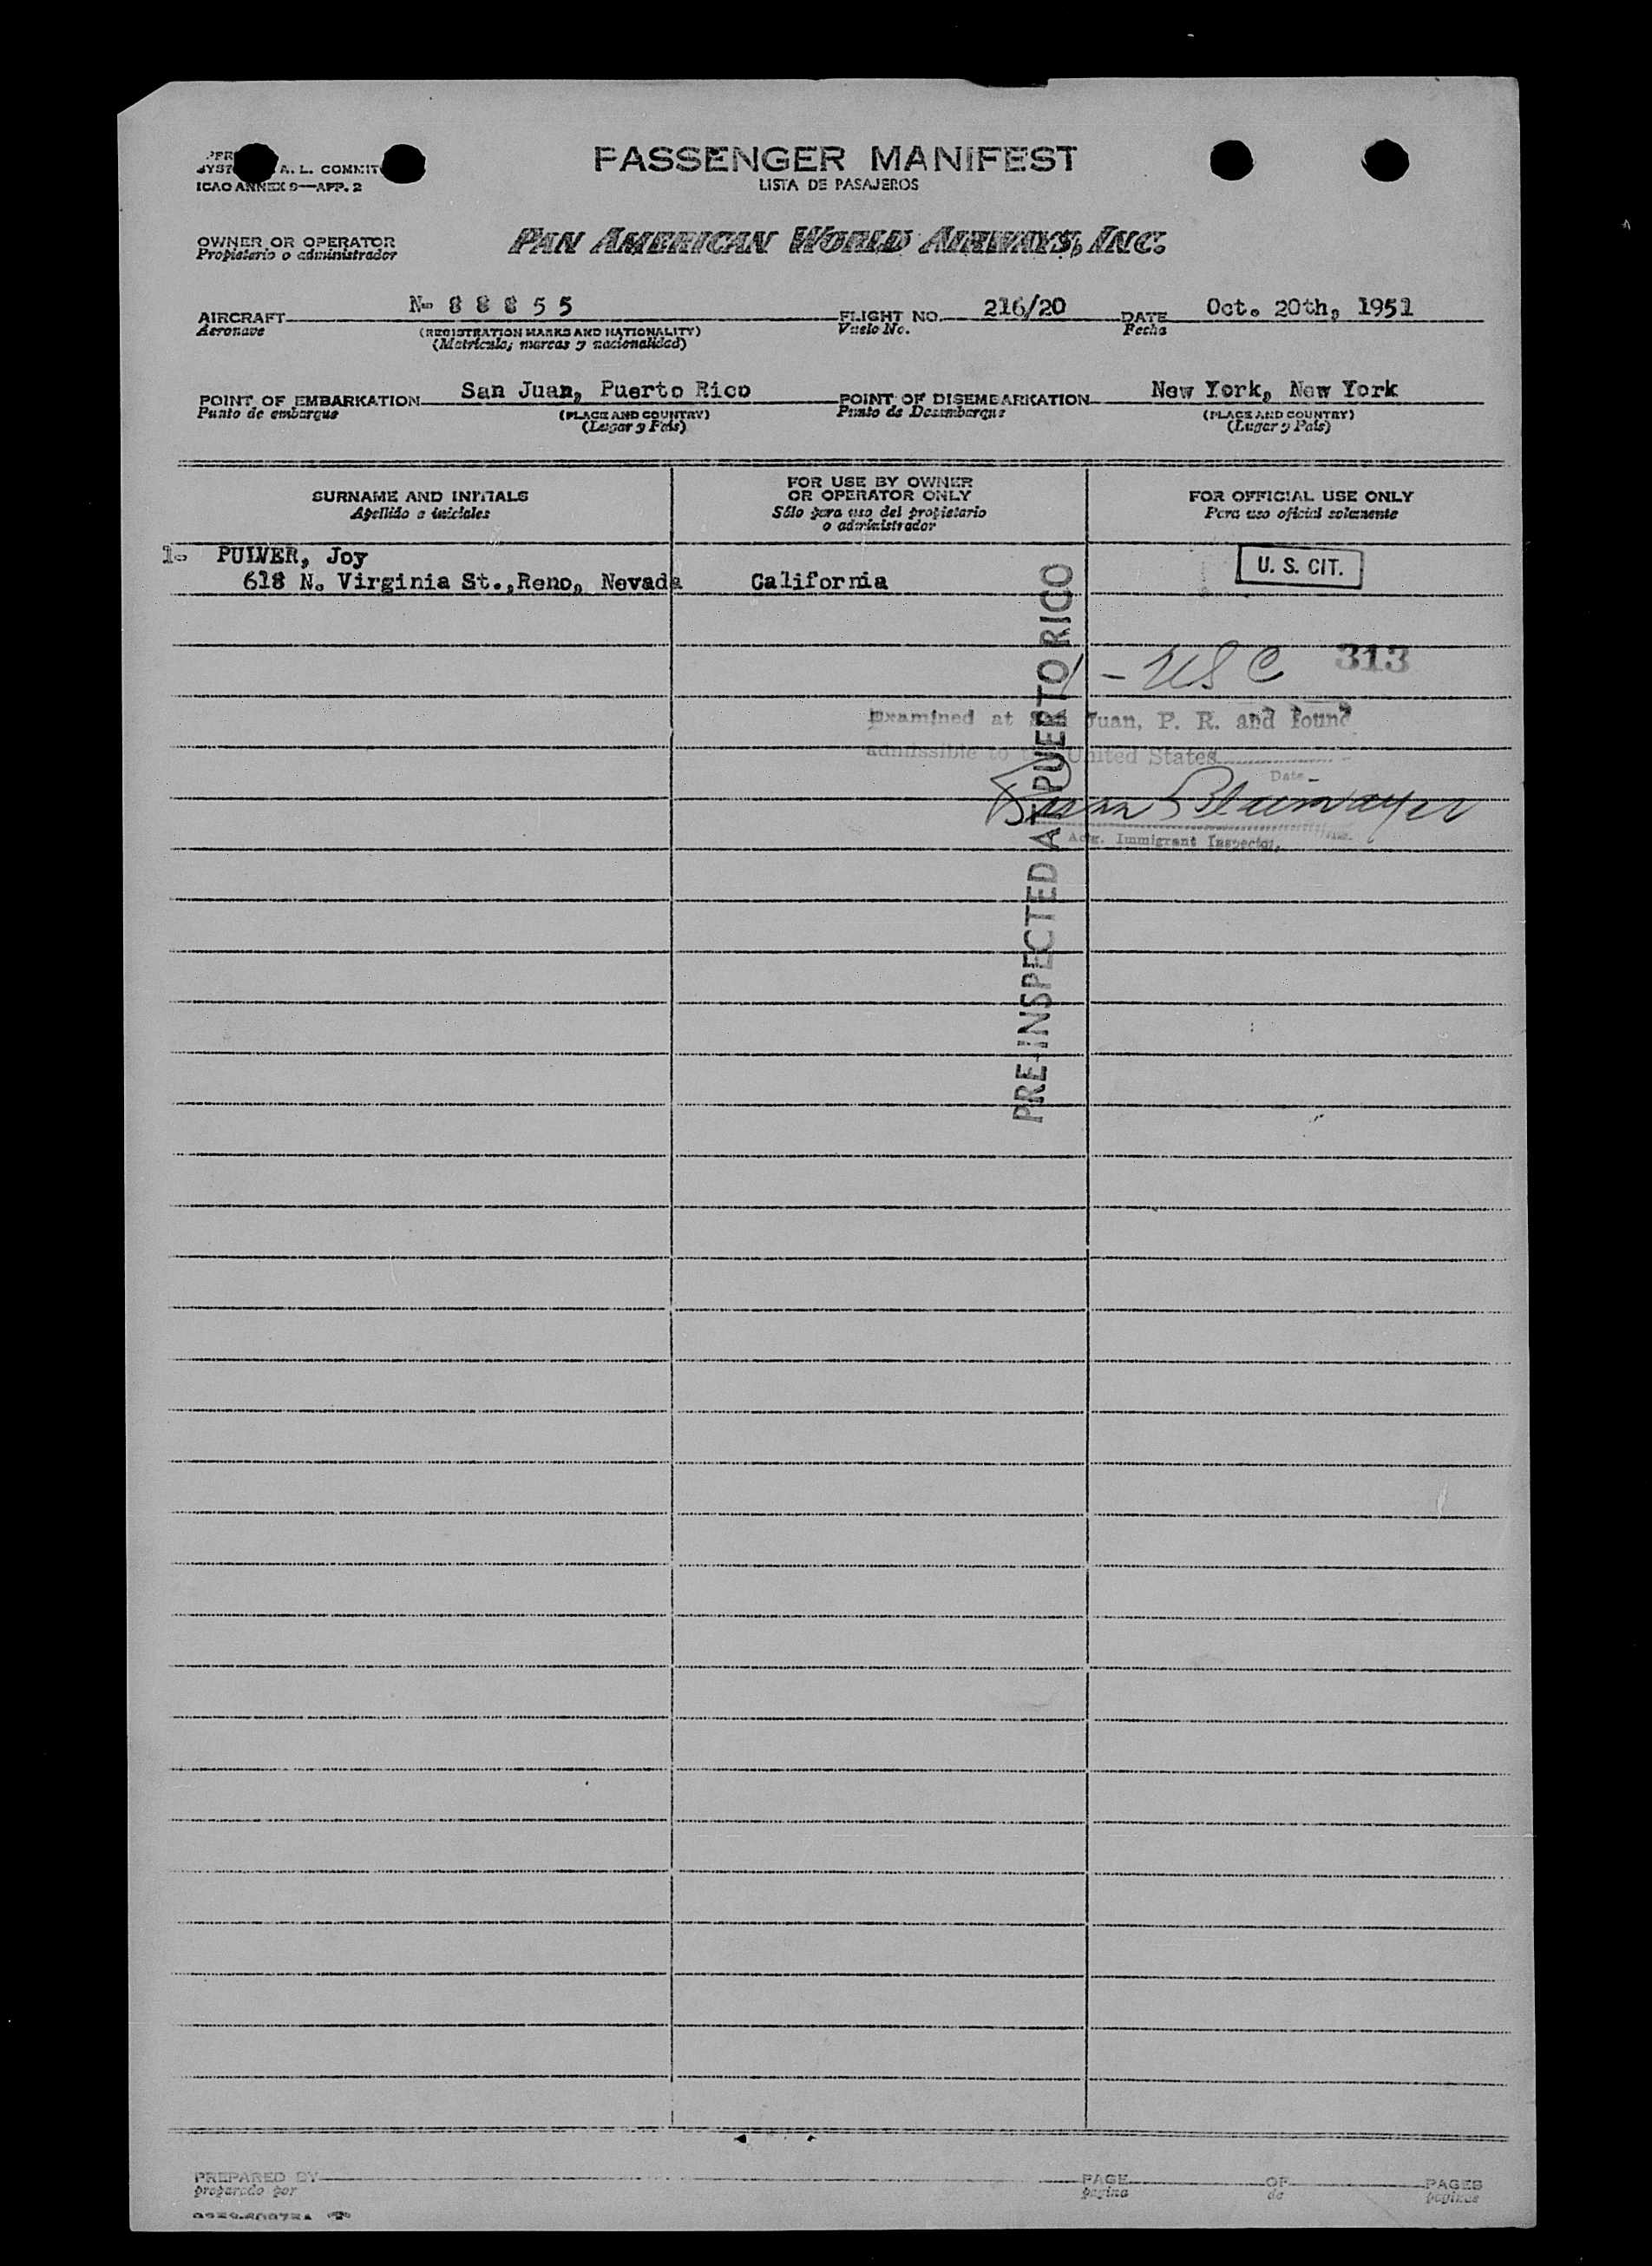 PASSENGER MANIFEST
LISTA DE PASAJEROS
A. L. COMMIT
ICAO ANNEX 9—APP. 2
OWNER OR OPERATOR
Propietario o administrador
PAN AMERICAN WORLD AIRWAYS, INC.
AIRCRAFT N- 88855 FLIGHT NO. 216/20 DATE Oct. 20th, 1951
Aeronave (REGISTRATION MARKS AND NATIONALITY) Vuelo No. Fecha
(Matrícula; marcas y nacionalidad)
POINT OF EMBARKATION San Juan, Puerto Rico POINT OF DISEMBARKATION New York, New York
Punto de embarque (PLACE AND COUNTRY) Punto de Desembarque (PLACE AND COUNTRY)
(Lugar y País) (Lugar y País)
SURNAME AND INITIALS
Apellido e iniciales
FOR USE BY OWNER
OR OPERATOR ONLY
Sólo para uso del propietario
o administrador
FOR OFFICIAL USE ONLY
Para uso oficial solamente
1- PULVER, Joy
618 N. Virginia St.,Reno, Nevada California
U. S. CIT.
1 - USC 313
Examined at San Juan, P. R. and found
admissible to the United States
Date
Actg. Immigrant Inspector.
PRE-INSPECTED AT PUERTO RICO
PREPARED BY PAGE OF PAGES
preparado por página de páginas